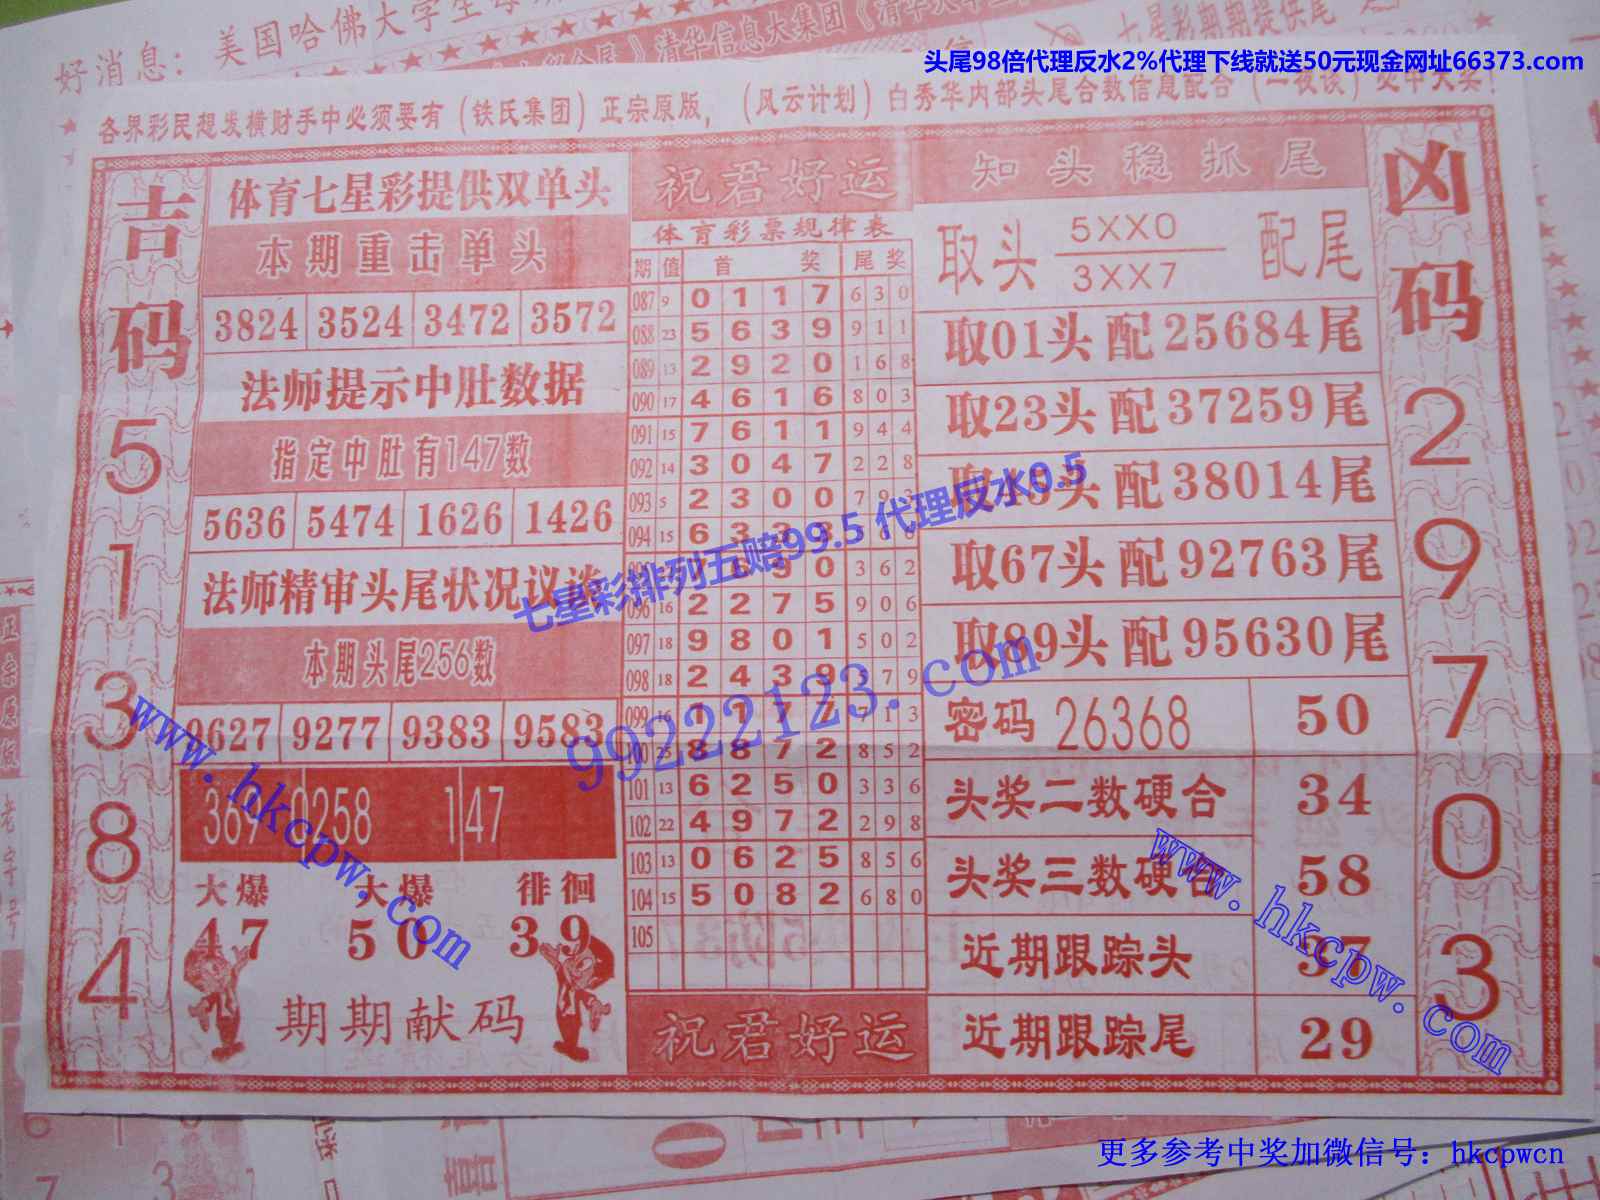 好消息：美国哈佛大学生
头尾98倍代理反水2%代理下线就送50元现金网址66373.com
各界彩民想发横财手中必须要有（铁氏集团）正宗原版，（风云计划）白秀华内部头尾合数信息配合（一夜谈）必中大奖！
吉码
5
1
3
8
4
体育七星彩提供双单头
本期重击单头
3824 3524 3472 3572
法师提示中肚数据
指定中肚有147数
5636 5474 1626 1426
法师精审头尾状况议谈
本期头尾256数
9627 9277 9383 9583
369 0258 147
大爆 大爆 徘徊
47 50 39
期期献码
祝君好运
体育彩票规律表
期 值 首 奖 尾 奖
087 9 0 1 1 7 6 3 0
088 23 5 6 3 9 9 1 1
089 13 2 9 2 0 1 6 8
090 17 4 6 1 6 8 0 3
091 15 7 6 1 1 9 4 4
092 14 3 0 4 7 2 2 8
093 5 2 3 0 0 7
094 15 6 3 3 3
6 9 0 3 6 2
096 16 2 2 7 5 9 0 6
097 18 9 8 0 1 5 0 2
098 18 2 4 3 9 5 7 9
099 16 1 1 7 7 7 1 3
100 25 8 8 7 2 8 5 2
101 13 6 2 5 0 3 3 6
102 22 4 9 7 2 2 9 8
103 13 0 6 2 5 8 5 6
104 15 5 0 8 2 6 8 0
105
祝君好运
知头稳抓尾
取头 5XX0 配尾
3XX7
取01头配25684尾
取23头配37259尾
取45头配38014尾
取67头配92763尾
取89头配95630尾
密码 26368 50
头奖二数硬合 34
头奖三数硬合 58
近期跟踪头 37
近期跟踪尾 29
凶码
2
9
7
0
3
七星彩排列五赔99.5 代理反水0.5
99222123.com
www.hkcpw.com
www.hkcpw.com
更多参考中奖加微信号：hkcpwcn